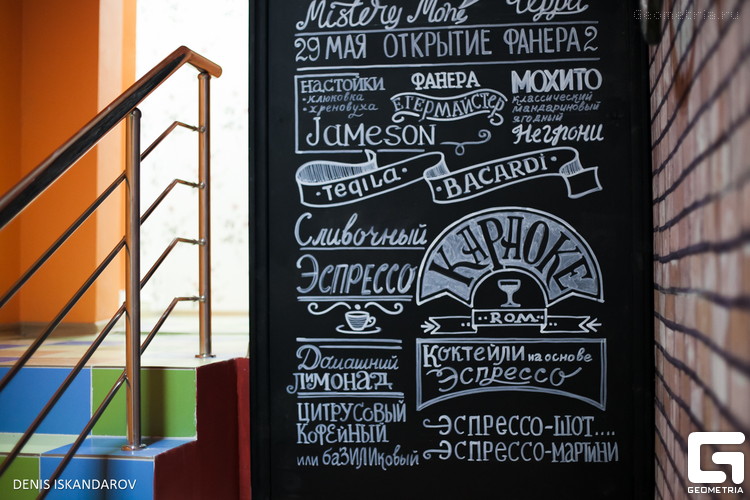 Mistery Mone Черри
Geometria.ru
29 МАЯ ОТКРЫТИЕ ФАНЕРА 2
НАСТОЙКИ
• клюковка
• хреновуха
ФАНЕРА
ЕГЕРМАЙСТЕР
JAMESON
МОХИТО
классический
мандариновый
ягодный
Негрони
• TEQUILA •
BACARDI •
Сливочный
Эспрессо
КАРАОКЕ
• ROM •
Домашний
лимонад
ЦИТРУСОВЫЙ
КОФЕЙНЫЙ
или баЗИЛИКовый
Коктейли на основе
Эспрессо
ЭСПРЕССО-ШОТ....
ЭСПРЕССО-МАРТИНИ
DENIS ISKANDAROV
GEOMETRIA